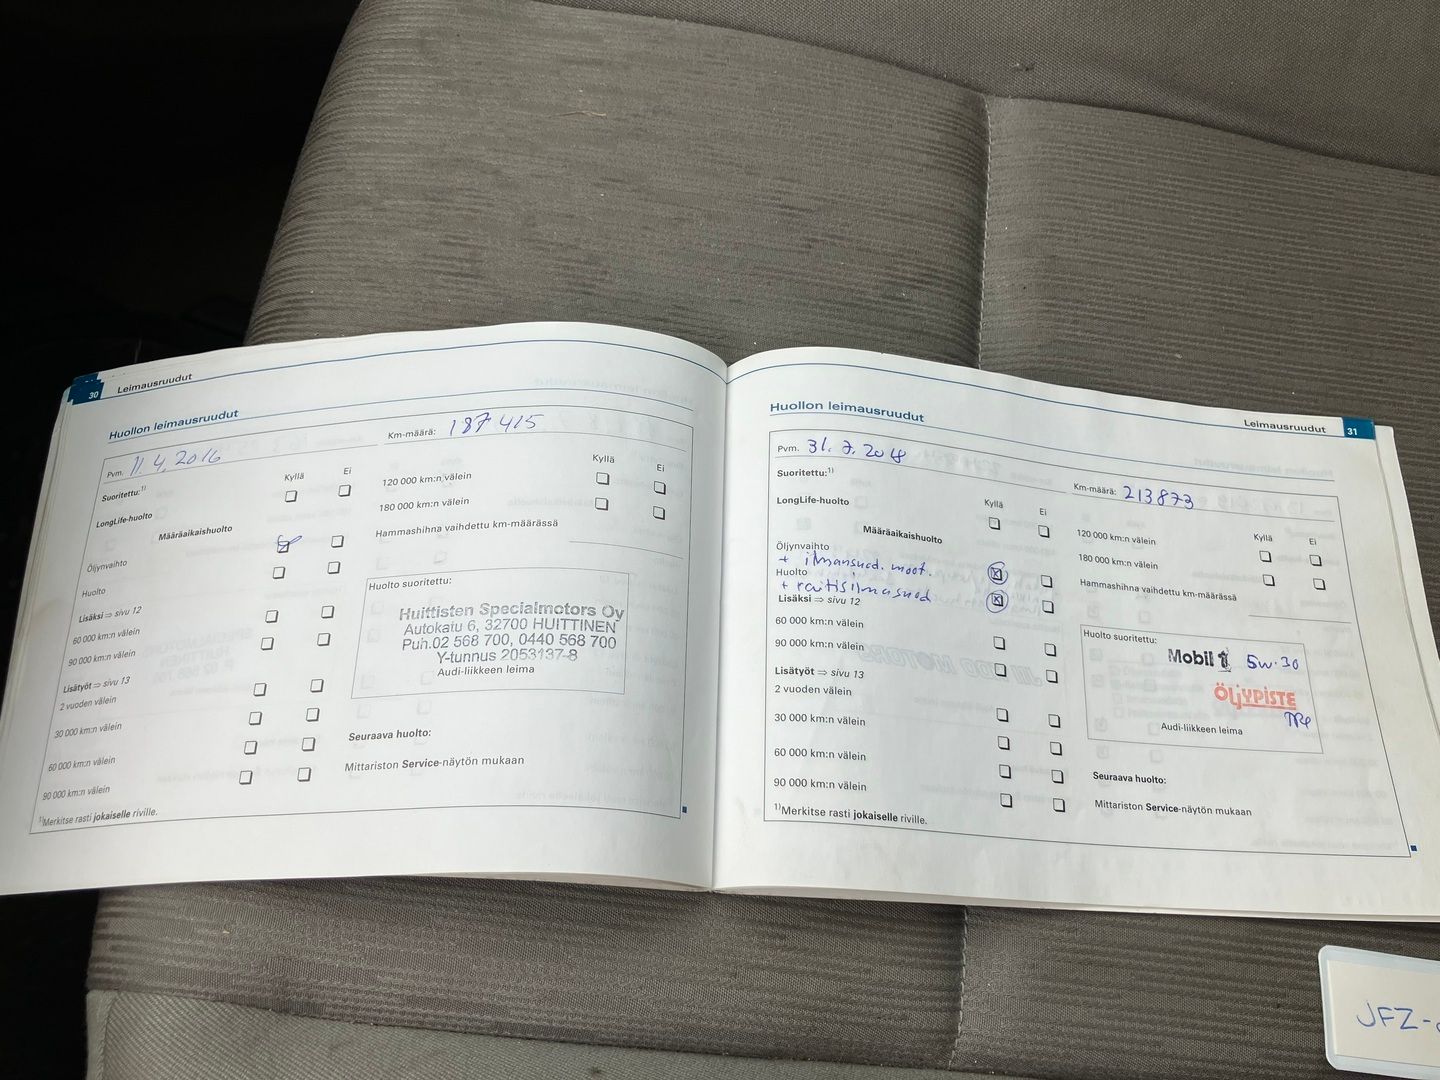 30 Leimausruudut
Huollon leimausruudut
Pvm. 11.4.2016
Km-määrä: 187 415
Suoritettu:1)
Kyllä Ei
LongLife-huolto
Määräaikaishuolto
Öljynvaihto
Huolto
Lisäksi ⇒ sivu 12
60 000 km:n välein
90 000 km:n välein
Lisätyöt ⇒ sivu 13
2 vuoden välein
30 000 km:n välein
60 000 km:n välein
90 000 km:n välein
1)Merkitse rasti jokaiselle riville.
Kyllä Ei
120 000 km:n välein
180 000 km:n välein
Hammashihna vaihdettu km-määrässä
Huolto suoritettu:
Huittisten Specialmotors Oy
Autokatu 6, 32700 HUITTINEN
Puh.02 568 700, 0440 568 700
Y-tunnus 2053137-8
Audi-liikkeen leima
Seuraava huolto:
Mittariston Service-näytön mukaan
Huollon leimausruudut
Leimausruudut 31
Pvm. 31.7.2018
Km-määrä: 213873
Suoritettu:1)
Kyllä Ei
LongLife-huolto
Määräaikaishuolto
Öljynvaihto
+ ilmansuod. moot.
Huolto
+ raitisilmasuod
Lisäksi ⇒ sivu 12
60 000 km:n välein
90 000 km:n välein
Lisätyöt ⇒ sivu 13
2 vuoden välein
30 000 km:n välein
60 000 km:n välein
90 000 km:n välein
1)Merkitse rasti jokaiselle riville.
Kyllä Ei
120 000 km:n välein
180 000 km:n välein
Hammashihna vaihdettu km-määrässä
Huolto suoritettu:
Mobil 1 5w-30
ÖLJYPISTE
Audi-liikkeen leima
Seuraava huolto:
Mittariston Service-näytön mukaan
JFZ-